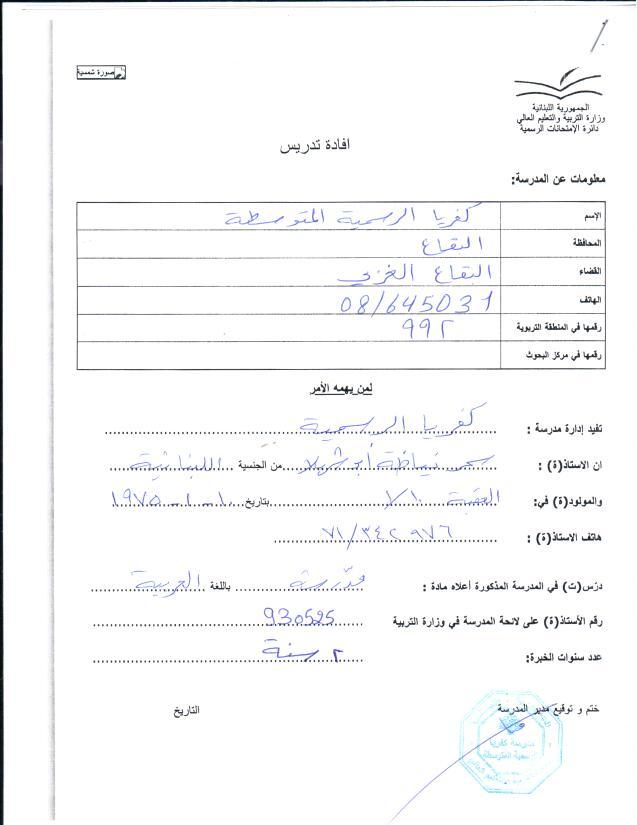 صورة شمسية
الجمهورية اللبنانية
وزارة التربية والتعليم العالي
دائرة الإمتحانات الرسمية
افادة تدريس
معلومات عن المدرسة:
الإسم كفريا الرسمية المتوسطة
المحافظة البقاع
القضاء البقاع الغربي
الهاتف 08/645031
رقمها في المنطقة التربوية ٩٩٢
رقمها في مركز البحوث
لمن يهمه الأمر
تفيد إدارة مدرسة : كفريا الرسمية
ان الاستاذ(ة) : سمر من الجنسية اللبنانية
والمولود(ة) في: العقبة بتاريخ ١٠-١-١٩٧٥
هاتف الاستاذ(ة) : ٧١/٣٤٢٩٧٦
درّس(ت) في المدرسة المذكورة أعلاه مادة : مدرسة باللغة العربية
رقم الأستاذ(ة) على لائحة المدرسة في وزارة التربية 930525
عدد سنوات الخبرة: ٢ سنة
ختم و توقيع مدير المدرسة التاريخ
مدرسة كفريا